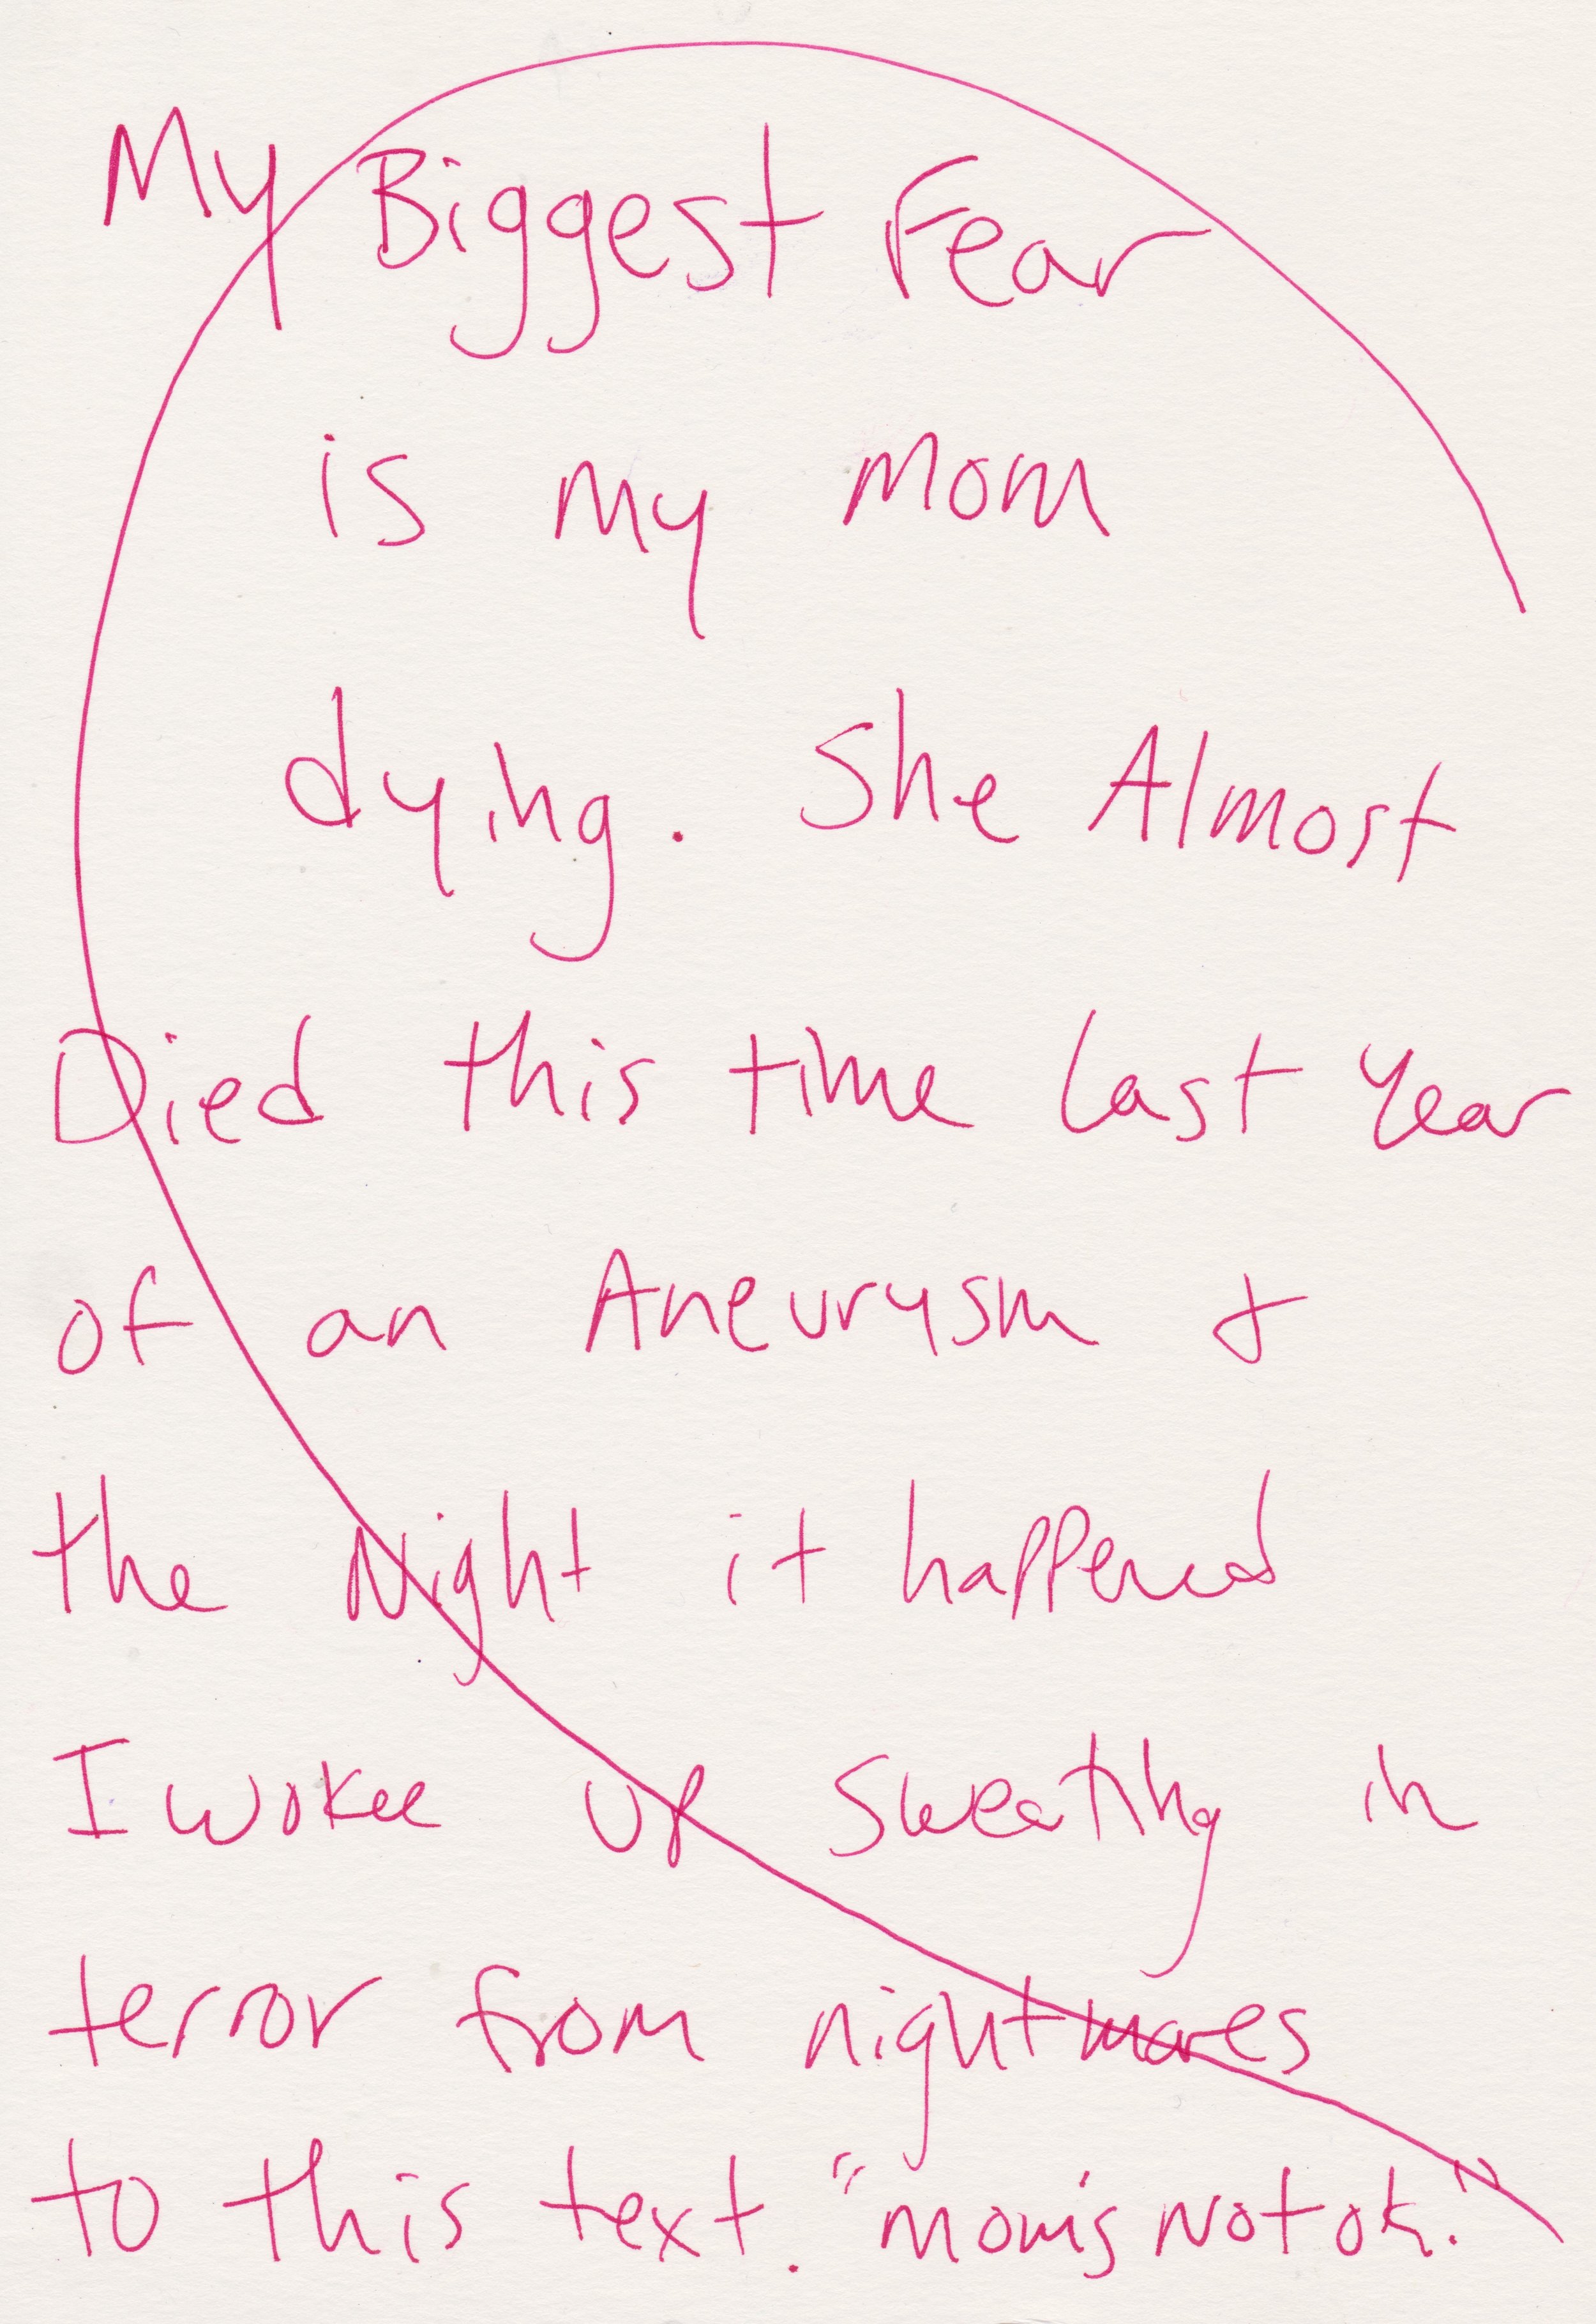 My Biggest Fear
is my mom
dying. She Almost
Died this time last year
of an Aneurysm &
the Night it happened
I wokee up sweating in
terror from nightmares
to this text. "mom's not ok."